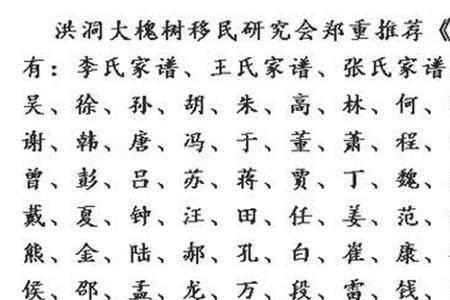 洪洞大槐树移民研究会郑重推荐《
有：李氏家谱、王氏家谱、张氏家谱
吴、徐、孙、胡、朱、高、林、何、
谢、韩、唐、冯、于、董、萧、程、
曾、彭、吕、苏、蒋、贾、丁、魏、
戴、夏、钟、汪、田、任、姜、范、
熊、金、陆、郝、孔、白、崔、康、
侯、邵、孟、龙、万、段、雷、钱、